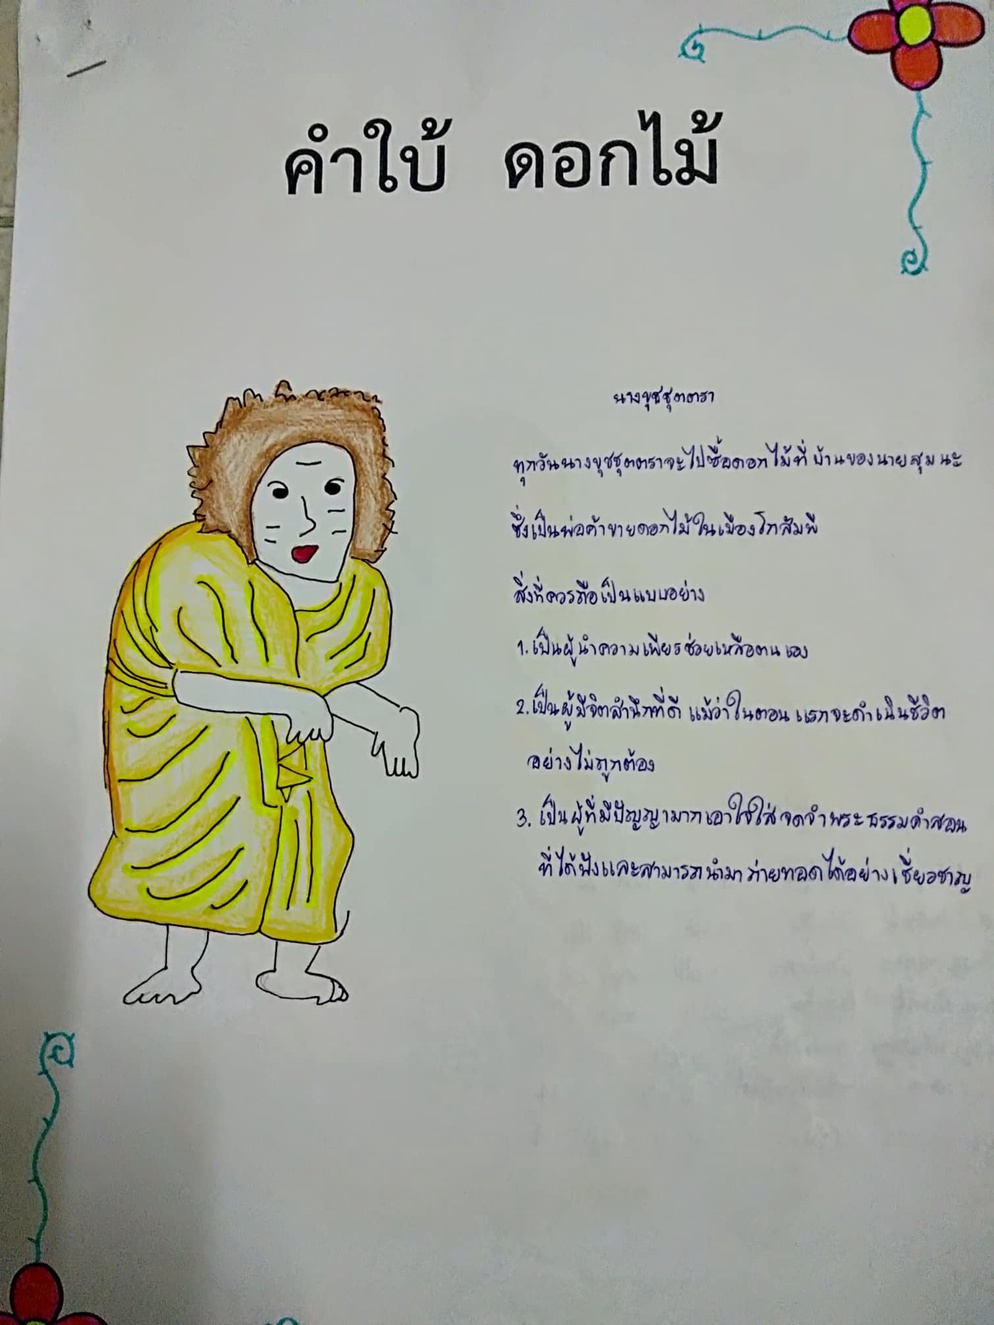 คำใบ้ ดอกไม้
นางขุชชุตตรา
ทุกวันนางขุชชุตตราจะไปซื้อดอกไม้ที่บ้านของนายสุมนะ
ซึ่งเป็นพ่อค้าขายดอกไม้ในเมืองโกสัมพี
สิ่งที่ควรถือเป็นแบบอย่าง
1. เป็นผู้นำความเพียรช่วยเหลือตนเอง
2. เป็นผู้มีจิตสำนึกที่ดี แม้ว่าในตอนแรกจะดำเนินชีวิต
อย่างไม่ถูกต้อง
3. เป็นผู้ที่มีปัญญามากเอาใจใส่จดจำพระธรรมคำสอน
ที่ได้ฟังและสามารถนำมาถ่ายทอดได้อย่างเชี่ยวชาญ